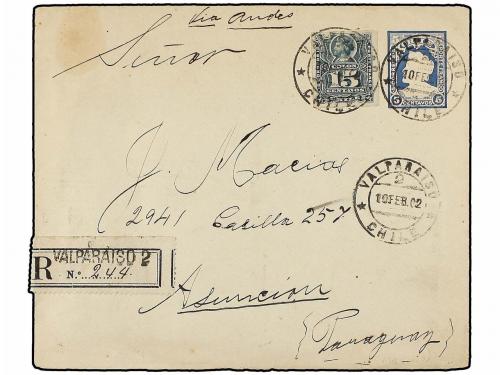 Via Andes
Señor
15
CENTAVOS
VALPARAISO
CHILE
VALPARAISO
10 FEB
CHILE
5 CENTAVOS 5
J. Macias
2941 Casilla 257
VALPARAISO
2
19 FEB. 02
CHILE
R VALPARAISO 2
No. 244
Asuncion
(Paraguay)